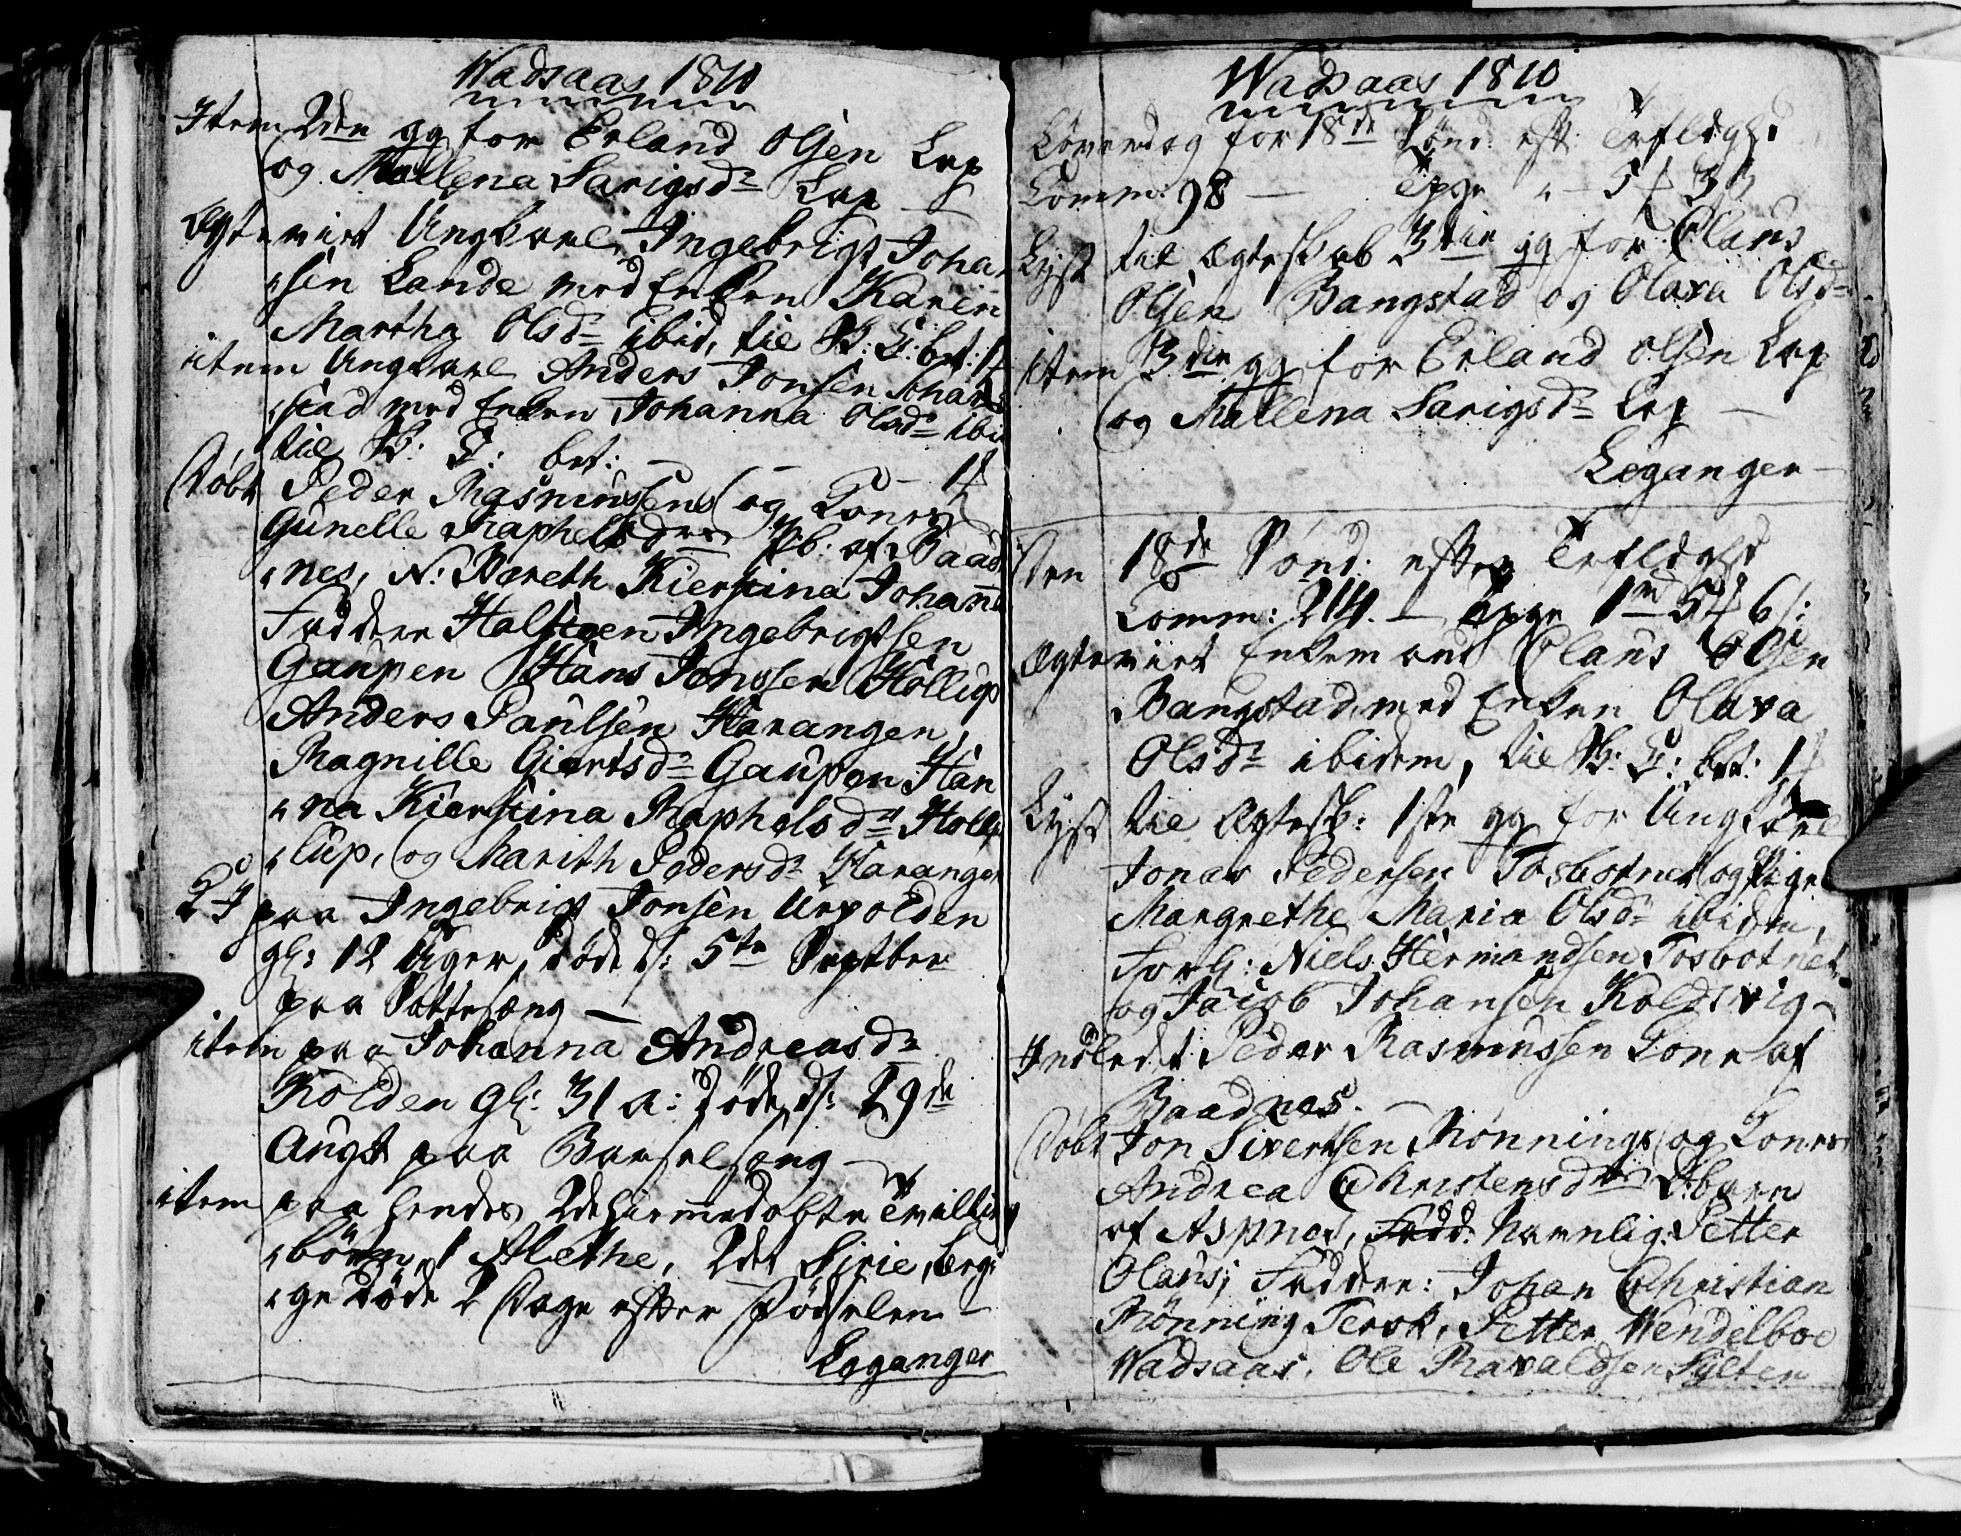 Wadsaas 1810
Item 2den gg for Erland Olsen Lap
og Mallena Larigsdr Lap —
Ægteviet Ungkarl Ingebrigt Johan
"sen Lande med Enken Karen
Martha Olsdr ibid, til B: C: bet: 1
item Ungkarl Anders Jonsen
"stad med Enken Johanna Olsdr ibid
til B: C: bet: — 1
Døbt Peder Rasmussens og Kones
Gunelle Raphelsdrs Pb: af Baad
"nes, N: Bereth Kierstina Johanna
Faddere Halsteen Ingebrigtsen
Gaupen Hans Jonssen Hollup
Anders Paulsen Harangen,
Ragnille Giertsdr Gaupen Han
"na Kierstina Raphelsdr Holl
"lup, og Marith Pedersdr Harangen
J paa Ingebrigt Jonsen Urvolden
gl: 12 Uger, døde d: 5te Septber
paa Sottesæng —
item paa Johanna Andreasdr
Kolden gl: 31 a: døde d: 29de
Augst paa Barselseng —
item paa hendes 2de hiemmedøbte Tvilling
"børn, 1 Alethe, 2det Sirie, begi
"ge døde 2 Dage efter Fødselen —
Leganger
Wadsaas 1810
Løverdag for 18de Sønd: eft: Trefoldighd
Comm: 98 — 5 3
Lyst til Ægteskab 3die gg for Claus
Olsen Bangstad og Olava Olsdr
item 3die gg for Erland Olsen Lap
og Mallena Larigsdr Lap —
Leganger —
Den 18de Sønd: efter Trefoldighd
Comm: 214. — 1 5 6
Ægteviet Enkemand Claus Olsen
Bangstad med Enken Olava
Olsdr ibidem, til B: C: bet: 1
Lyst til Ægtesk: 1ste gg for Ungkarl
Jonas Pedersen Tosbotnet og Pige
Margrethe Maria Olsdr ibidem,
Forl: Niels Hermandsen Tosbotnet
og Jacob Johansen Koldsvig —
Indledt Peder Rasmussen Kone af
Baadnes. —
Døbt Jon Sivertsen Rønnings og Kones
Andrea Christensdrs Dbarn
af Aspnes, Fadd: navnlig: Petter
Olaus; Faddere: Johan Christian
Rønning Terok, Petter Wendelboe
Wadsaas, Ole Ravaldsen Sylten